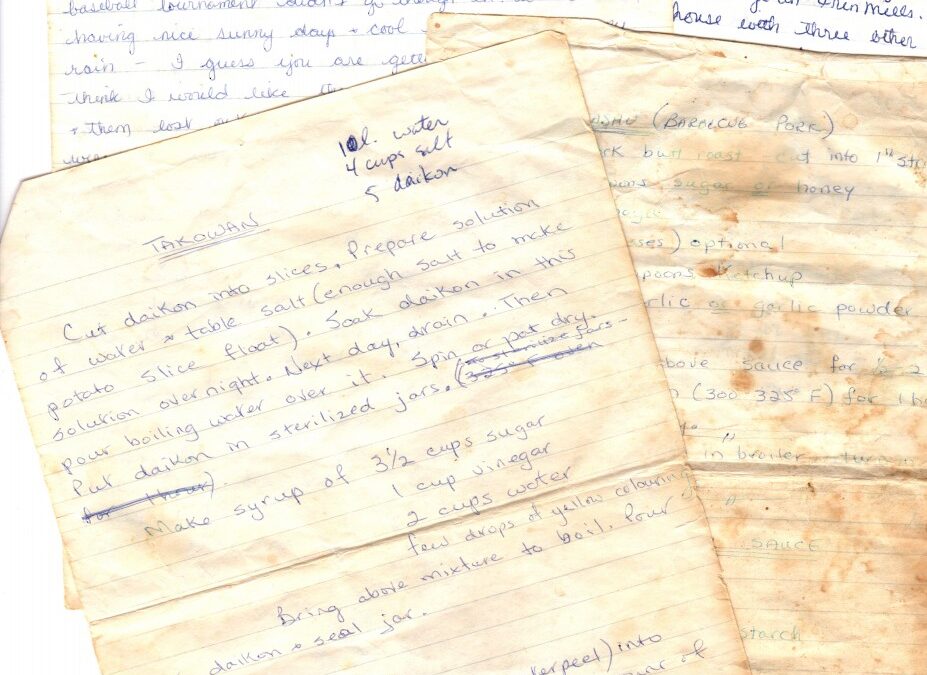 baseball tournament
having nice sunny days + cool
rain - I guess you are
think I would like
+ them lost
Grinmills.
house with three other
10 l. water
4 cups salt
5 daikon
TAKOWAN
Cut daikon into slices. Prepare solution
of water + table salt (enough salt to make
potato slice float). Soak daikon in this
solution overnight. Next day, drain. Then
pour boiling water over it. Spin or pat dry.
Put daikon in sterilized jars. (to sterilize jars -
325° F oven
for 1 hour).
Make syrup of 3 1/2 cups sugar
1 cup vinegar
2 cups water
few drops of yellow colouring
Bring above mixture to boil. Pour
daikon + seal jar.
peel) into
of
(BARBECUE PORK)
butt roast cut into 1"
sugar or honey
optional
ketchup
garlic or garlic powder
above sauce for
(300-325° F) for 1
"
in broiler, turn
"
SAUCE
starch